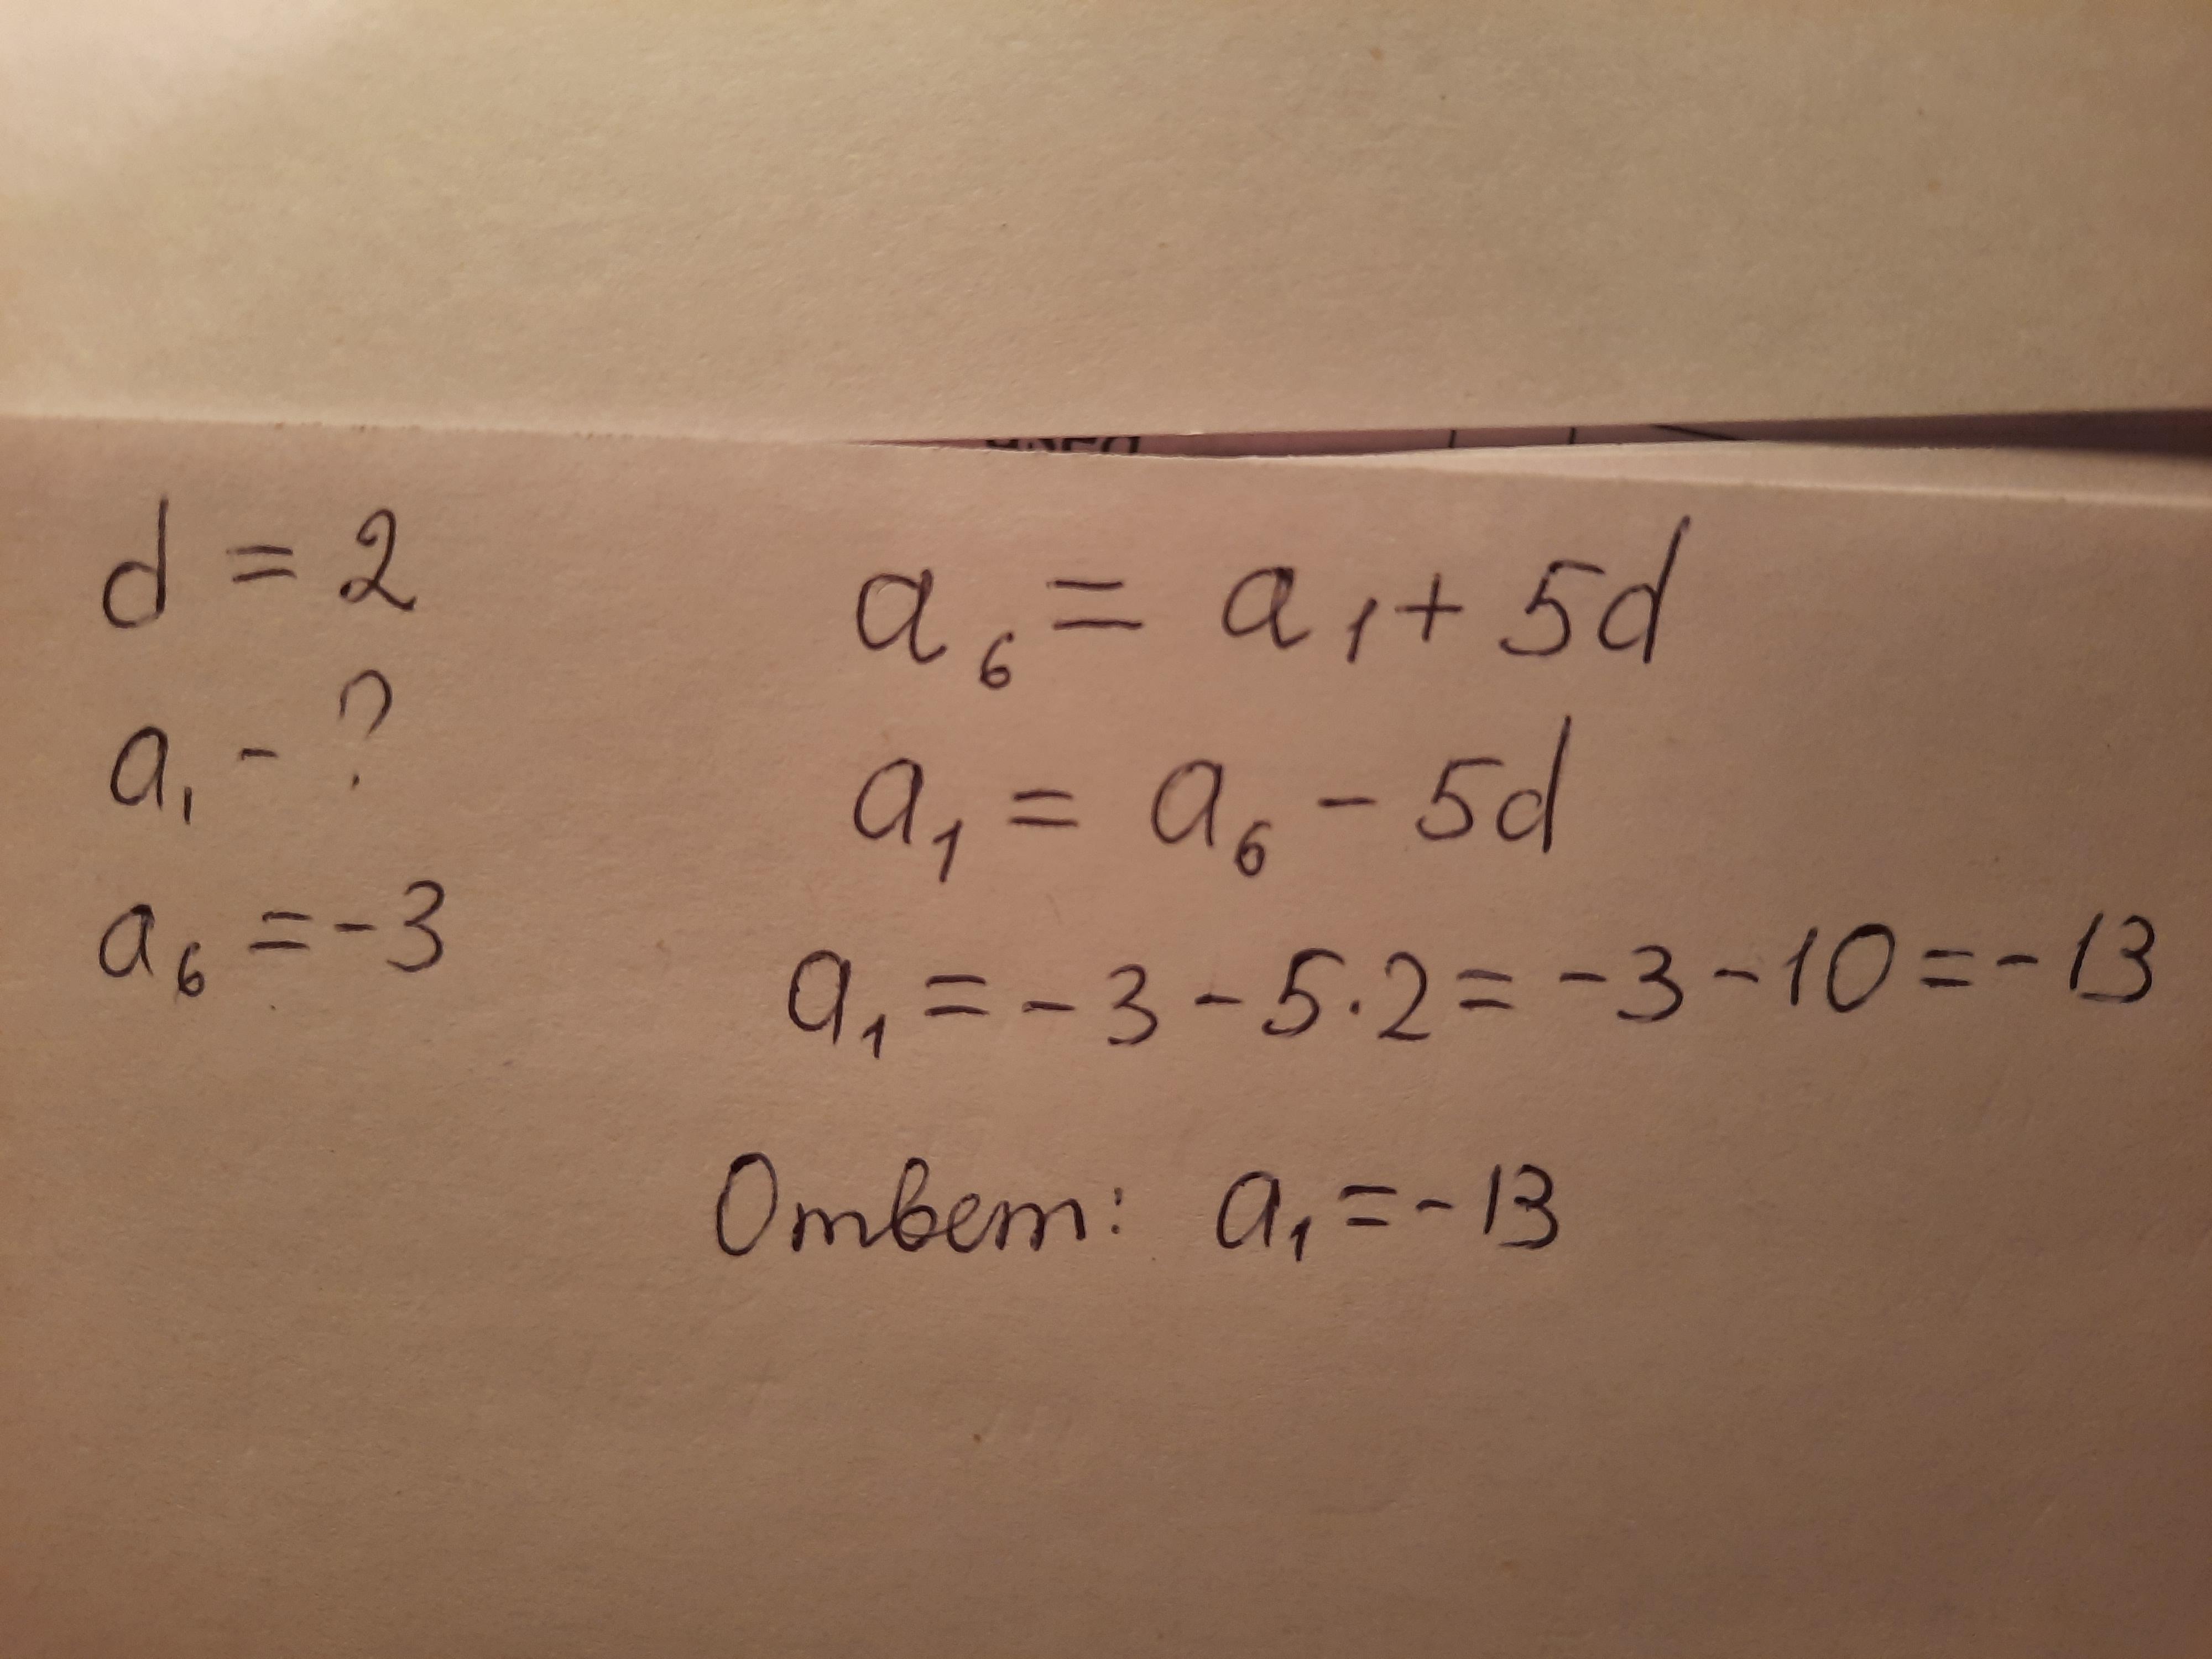 d = 2
a₁ - ?
a₆ = -3
a₆ = a₁ + 5d
a₁ = a₆ - 5d
a₁ = -3 - 5·2 = -3 - 10 = -13
Ответ: a₁ = -13